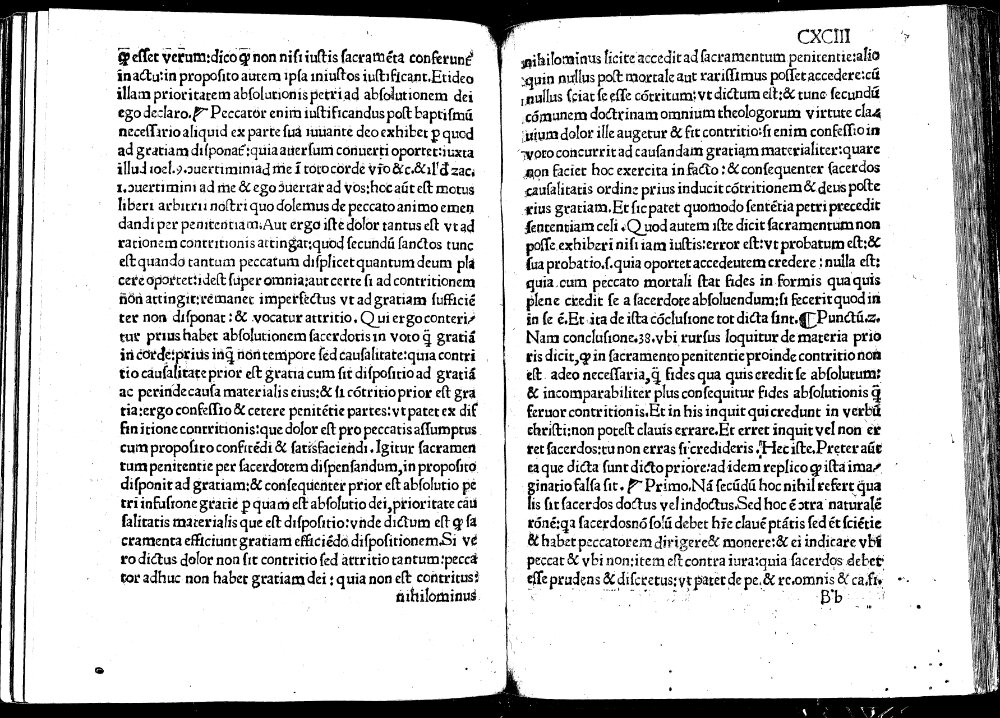 ꝙ̄ esset verum:dico ꝙ̄ non nisi iustis sacramēta conferunt̄
in actu:in proposito autem ipsa iniustos iustificant.Et ideo
illam prioritatem absolutionis petri ad absolutionem dei
ego declaro. Peccator enim iustificandus post baptismū
necessario aliquid ex parte sua iuuante deo exhibet ꝑ quod
ad gratiam disponat̄:quia auersum conuerti oportet:iuxta
illud ioel.9.ↄuertimini ad me ī toto corde vr̄o &c.& il'd zac.
1.ↄuertimini ad me & ego ↄuertar ad vos:hoc aūt est motus
liberi arbitrii nostri quo dolemus de peccato animo emen
dandi per penitentiam.Aut ergo iste dolor tantus est vt ad
rationem contritionis attingat:quod secundū sanctos tunc
est quando tantum peccatum displicet quantum deum pla
cere oportet:idest super omnia:aut certe si ad contritionem
nōn attingit:remanet imperfectus vt ad gratiam sufficiē
ter non disponat:& vocatur attritio.Qui ergo conteri/
tur prius habet absolutionem sacerdotis in voto q̄ gratiā
in corde:prius inq̄ non tempore sed causalitate:quia contri
tio causalitate prior est gratia cum sit dispositio ad gratiā
ac perinde causa materialis eius:& si cōtritio prior est gra
tia:ergo confessio & cetere penitētie partes:vt patet ex dif
finitione contritionis:que dolor est pro peccatis assumptus
cum proposito confitēdi & satisfaciendi.Igitur sacramen
tum penitentie per sacerdotem dispensandum,in proposito
disponit ad gratiam:& consequenter prior est absolutio pe
tri infusione gratie ꝑ quam est absolutio dei,prioritate cau
salitatis materialis que est dispositio:vnde dictum est ꝙ sa
cramenta efficiunt gratiam efficiēdo dispositionem.Si ve
ro dictus dolor non sit contritio sed attritio tantum:pecca
tor adhuc non habet gratiam dei:quia non est contritus:
nihilominus
CXCIII
nihilominus licite accedit ad sacramentum penitentie:alio
quin nullus post mortale aut rarissimus posset accedere:cū
nullus sciat se esse cōtritum:vt dictum est:& tunc secundū
cōmunem doctrinam omnium theologorum virtute cla/
uium dolor ille augetur & fit contritio:si enim confessio in
voto concurrit ad causandam gratiam materialiter:quare
non faciet hoc exercita in facto:& consequenter sacerdos
causalitatis ordine prius inducit cōtritionem & deus poste
rius gratiam.Et sic patet quomodo sentētia petri precedit
sententiam celi.Quod autem iste dicit sacramentum non
posse exhiberi nisi iam iustis:error est:vt probatum est:&
sua probatio.s.quia oportet accedeutem credere:nulla est:
quia cum peccato mortali stat fides in formis qua quis
plene credit se a sacerdote absoluendum:si fecerit quod in
in se ē.Et ita de ista cōclusione tot dicta sint.¶Punctū.2.
Nam conclusione.38.vbi rursus loquitur de materia prio
ris dicit,ꝙ in sacramento penitentie proinde contritio non
est adeo necessaria,q̄ fides qua quis credit se absolutum:
& incomparabiliter plus consequitur fides absolutionis q̄
feruor contritionis.Et in his inquit qui credunt in verbū
christi:non potest clauis errare.Et erret inquit vel non er
ret sacerdos:tu non erras si credideris.Hec iste.Preter aūt
ea que dicta sunt dicto priore:ad idem replico ꝙ ista ima/
ginatio falsa sit. Primo.Nā secūdū hoc nihil refert qua
lis sit sacerdos doctus vel indoctus.Sed hoc ē ↄtra naturalē
rōnē:qa sacerdos nō solū debet hr̄e clauē ptātis sed ēt sciētie
& habet peccatorem dirigere & monere:& ei indicare vbi
peccat & vbi non:item est contra iura:quia sacerdos debet
esse prudens & discretus:vt patet de pe.& re.omnis & ca.si.
Bb